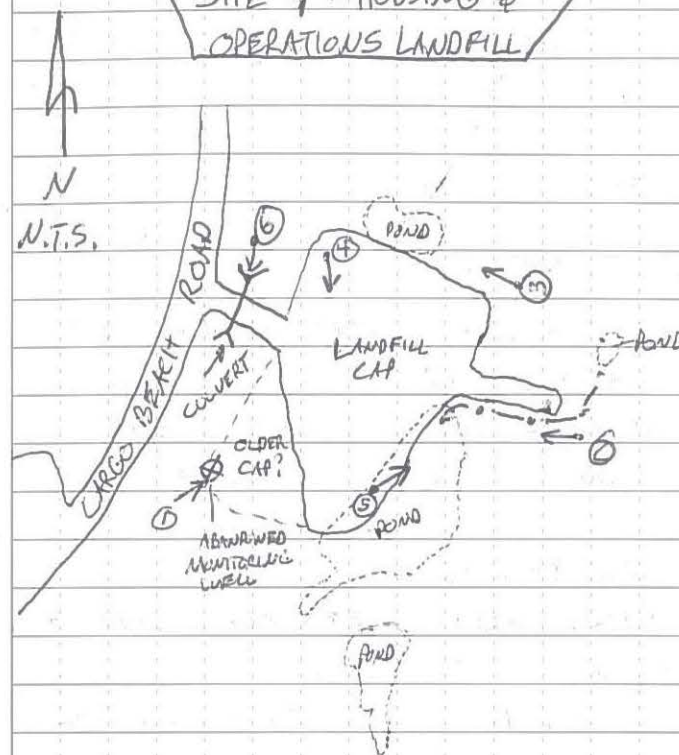 SITE 7 HOUSING &
OPERATIONS LANDFILL
N
N.T.S.
CARGO BEACH ROAD
6
4
POND
3
LANDFILL
CAP
POND
CULVERT
OLDER
CAP?
2
1
5
POND
ABANDONED
MONITORING
WELL
POND